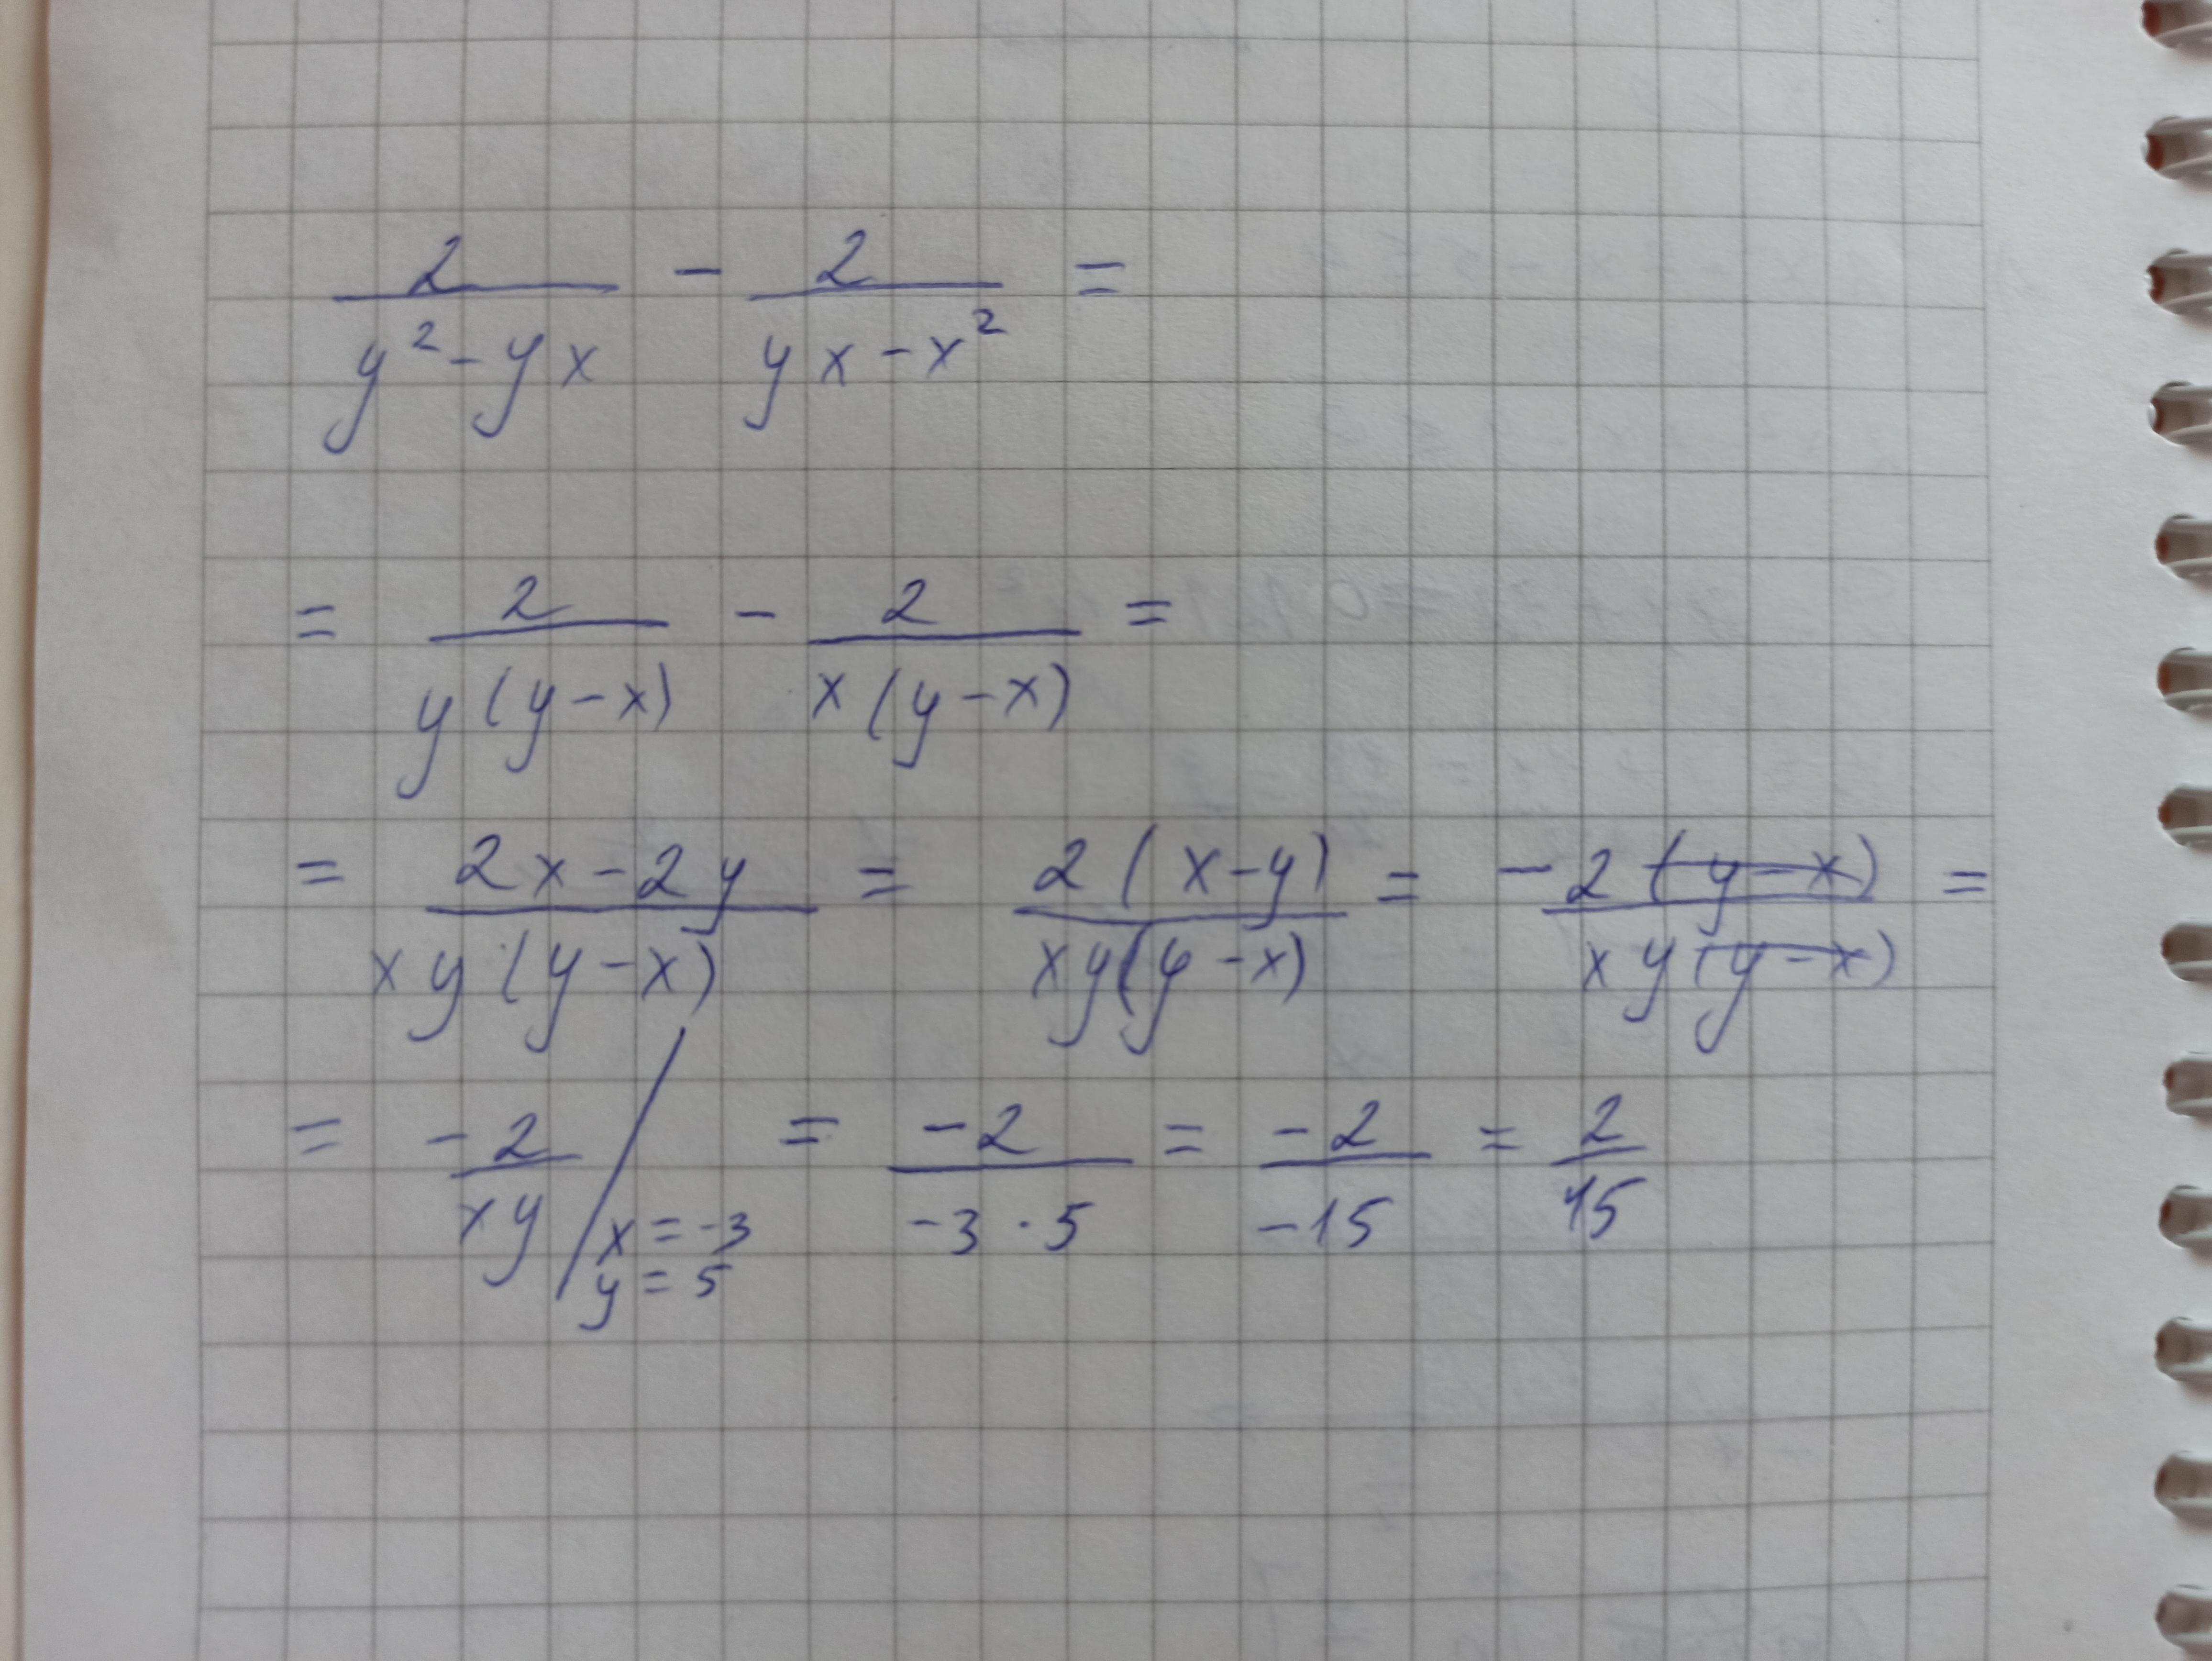 2/(y² - yx) - 2/(yx - x²) =
= 2/(y(y-x)) - 2/(x(y-x)) =
= (2x - 2y)/(xy(y-x)) = 2(x-y)/(xy(y-x)) = -2(y-x)/(xy(y-x)) =
= -2/(xy) / x = -3 y = 5 = -2/(-3·5) = -2/-15 = 2/15